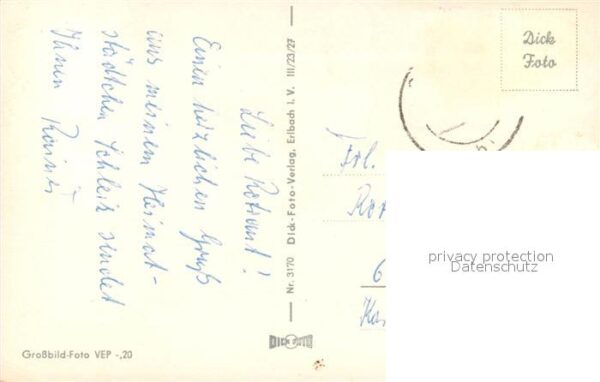 Liebe Rotraut!
Einen herzlichen Gruß
aus meinem Heimat-
städtchen Schleiz sendet
Ihnen Rainer
Nr. 3170 Dick-Foto-Verlag, Erlbach i. V. III/23/27
DICK FOTO
Großbild-Foto VEP -,20
Dick
Foto
Frl.
6
privacy protection
Datenschutz